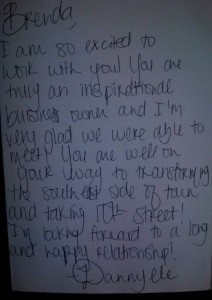 Brenda,
I am so excited to
work with you! You are
truly an inspirational
business owner and I'm
very glad we were able to
meet! You are well on
your way to transforming
the southeast side of town
and taking 10th Street!
I'm looking forward to a long
and happy relationship!
Dannyele